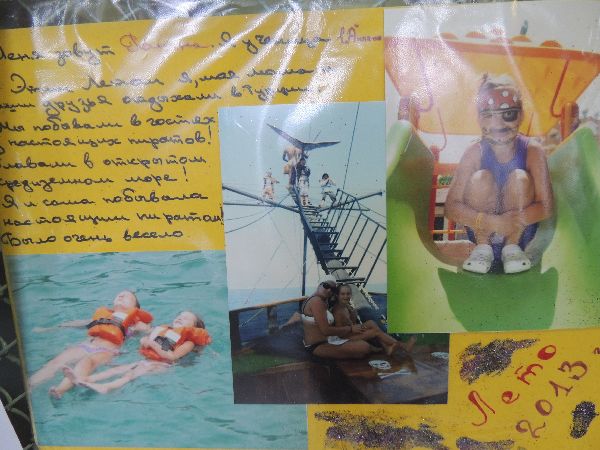 Меня зовут Я ученица 1А
Этим Летом я, моя мама и
друзья отдыхали в Турции.
Мы побывали в гостях
у настоящих пиратов!
Плавали в открытом
средиземном море!
Я и сама побывала
настоящим пиратом!
Было очень весело
Лето
2013